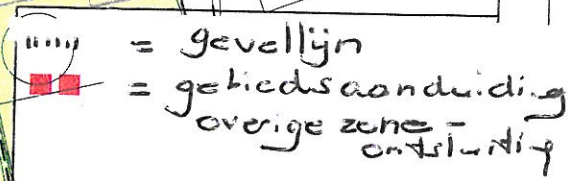 = gevellijn
= gebiedsaanduiding
overige zone -
ontsluiting